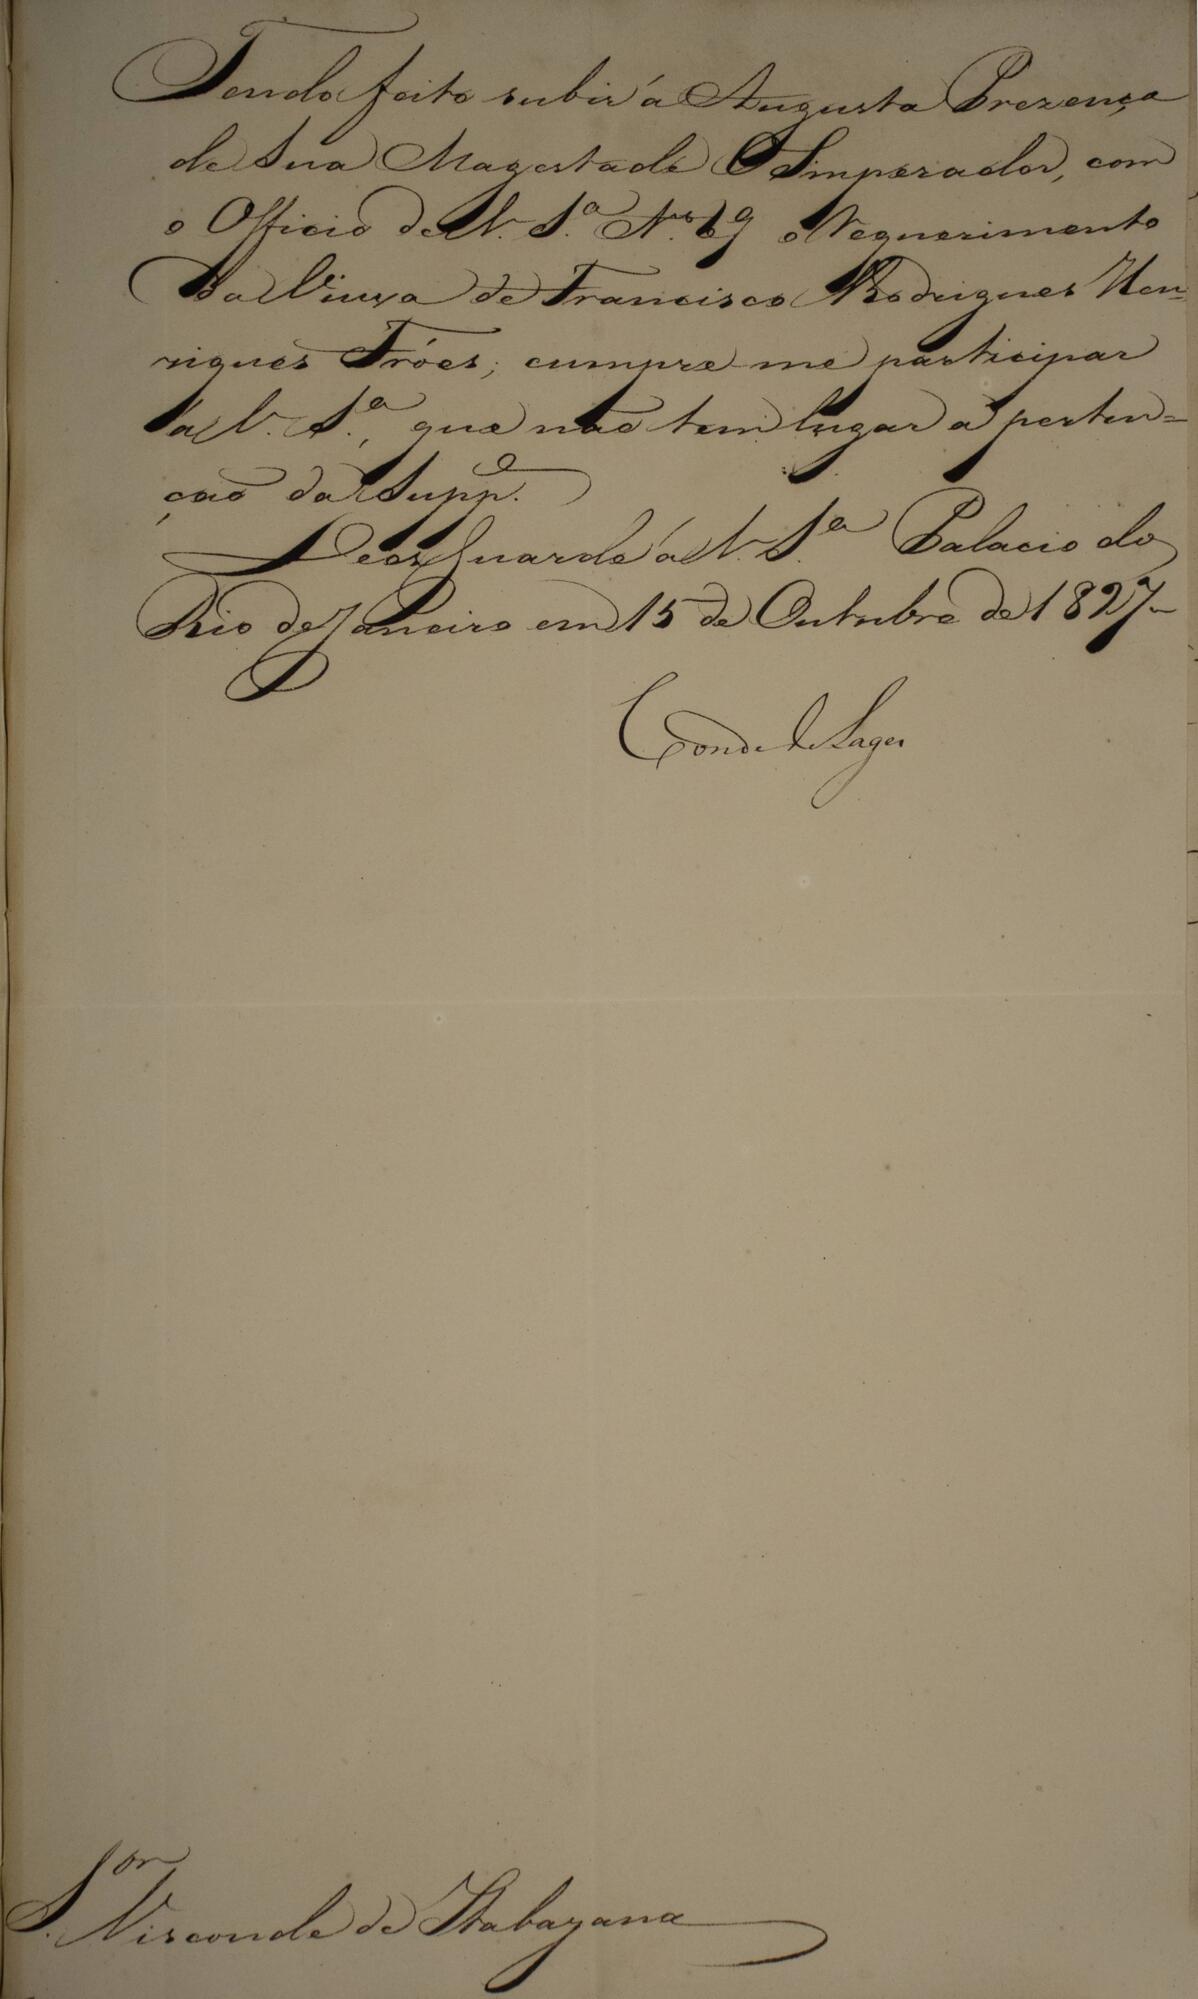 Tendo feito subir á Augusta Prezença
de Sua Magestade O Imperador, com
o Officio de V. S.ª N.º 69 o Requerimento
da Viuva de Francisco Rodrigues Hen-
riques Tróes; cumpre-me participar
á V. S.ª, que não tem lugar a perten=
ção da Supp.e
Deos Guarde á V. S.ª Palacio do
Rio de Janeiro em 15 de Outubro de 1827-
Conde de Lages
S.or Visconde de Itabayana